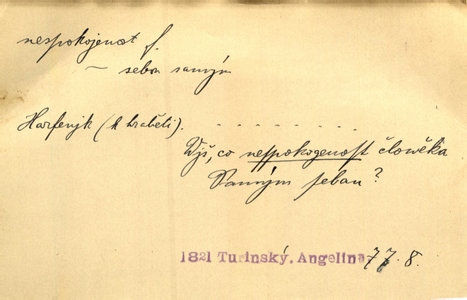 nespokojenost f.
— sebou samým
Harfenjk (k hraběti). . . . . . . . . . .
Wjš, co nespokogenost člowěka
Samým sebau?
1821 Turinský, Angelina 77.8.